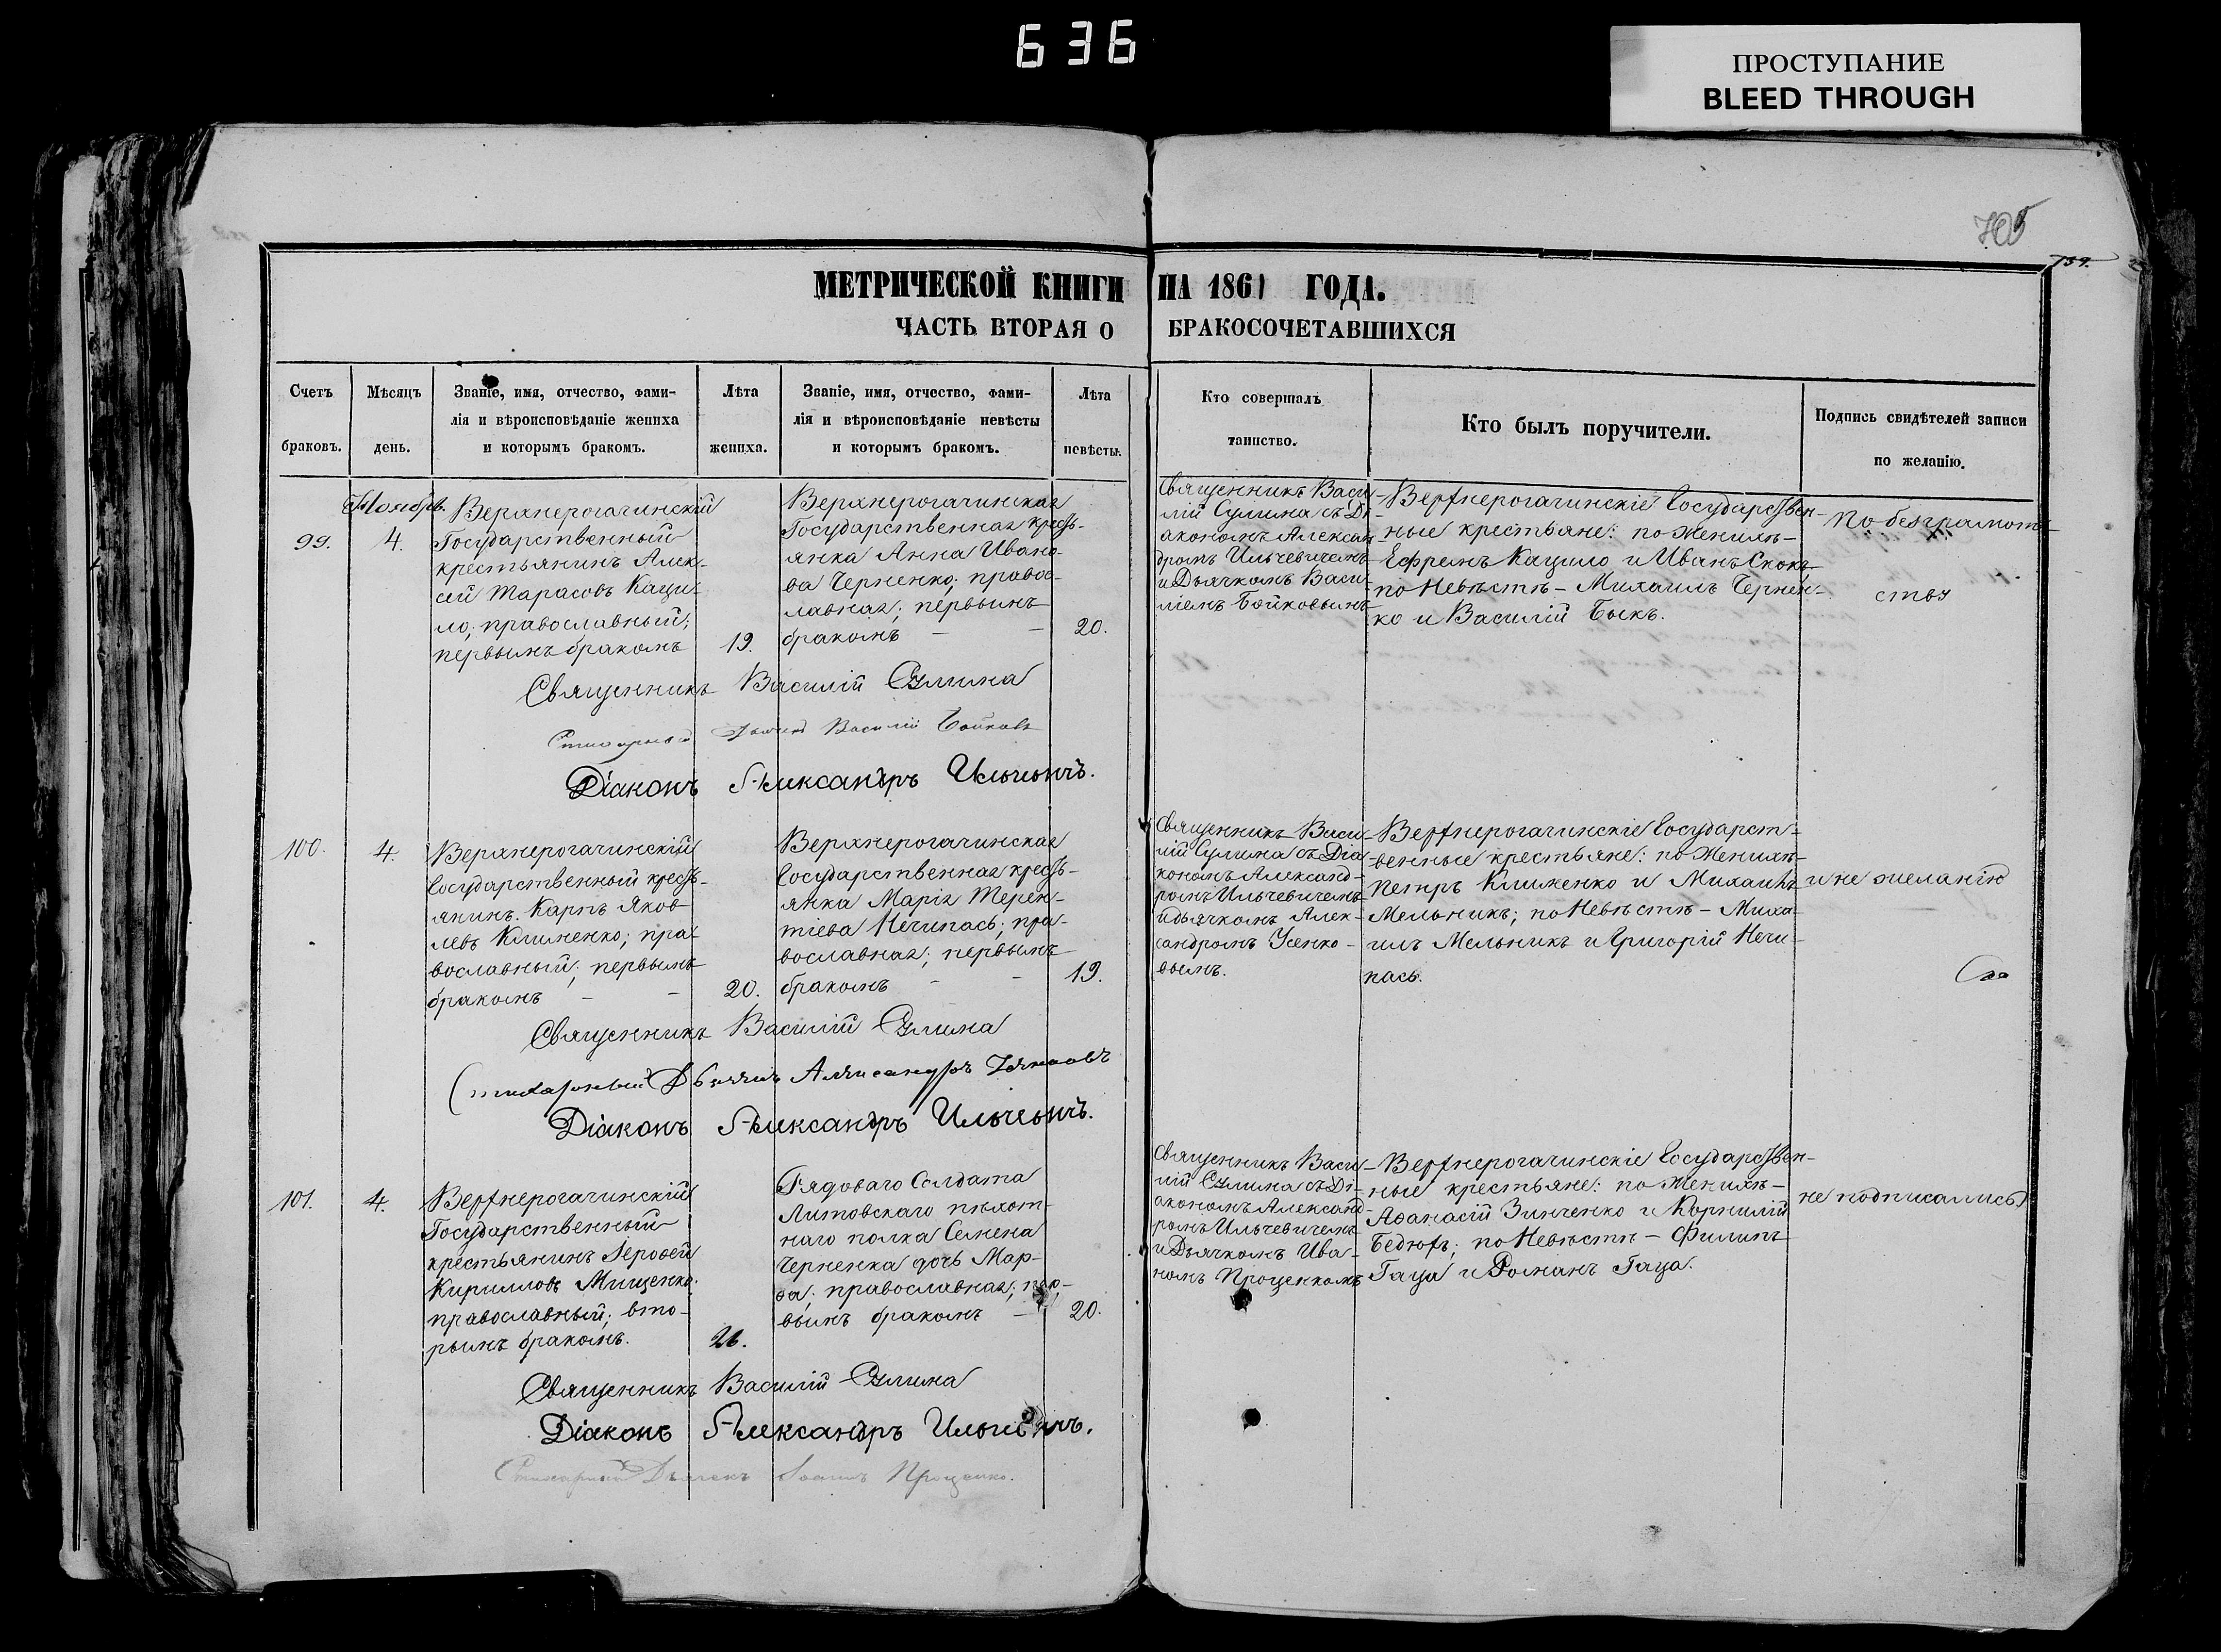 636
ПРОСТУПАНИЕ
BLEED THROUGH
705
МЕТРИЧЕСКОЙ КНИГИ НА 1861 ГОДА.
ЧАСТЬ ВТОРАЯ О БРАКОСОЧЕТАВШИХСЯ
Счетъ
браковъ.
Мѣсяцъ
день.
Званіе, имя, отчество, фами-
лія и вѣроисповѣданіе жениха
и которымъ бракомъ.
Лѣта
жениха.
Званіе, имя, отчество, фами-
лія и вѣроисповѣданіе невѣсты
и которымъ бракомъ.
Лѣта
невѣсты.
Кто совершалъ
таинство.
Кто былъ поручители.
Подпись свидѣтелей записи
по желанію.
99.
Ноябрь.
4.
Верхнерогачинскій
Государственный
крестьянинъ Алек-
сей Тарасовъ Каци-
ло; православный;
первымъ бракомъ
19.
Верхнерогачинская
Государственная кресть-
янка Анна Ивано-
ва Черненко; правос-
лавная; первымъ
бракомъ — —
20.
Священникъ Васи-
лій Сулима съ Ді-
акономъ Алексан-
дромъ Ильчевичемъ
и Дьячкомъ Васи-
ліемъ Бойковымъ
Верхнерогачинскіе Государствен-
ные крестьяне: по Женихѣ-
Ефремъ Кацило и Иванъ Скокъ
по Невѣстѣ - Михаилъ Чернен-
ко и Василій Быкъ.
По безграмот-
ству
Священникъ Василій Сулима
Стихарный Дьячекъ Василій Бойковъ
Діаконъ Александръ Ильчевичъ.
100.
4.
Верхнерогачинскій
Государственный кресть-
янинъ Карпъ Яков-
левъ Клименко; пра-
вославный; первымъ
бракомъ — —
20.
Верхнерогачинская
Государственная кресть-
янка Марія Терен-
тіева Нечипась; пра-
вославная; первымъ
бракомъ — —
19.
Священникъ Васи-
лій Сулима съ Діа-
кономъ Александ-
ромъ Ильчевичемъ
и дьячкомъ Алек-
сандромъ Усенко-
вымъ.
Верхнерогачинскіе Государст-
венные крестьяне: по Женихѣ-
Петръ Клименко и Михаилъ
Мельникъ; по Невѣстѣ - Миха-
илъ Мельникъ и Григорій Нечи-
пась.
и не желанію
Священникъ Василій Сулима
Стихарный Дьячекъ Александръ
Діаконъ Александръ Ильчевичъ.
101.
4.
Верхнерогачинскій
Государственный
крестьянинъ Іерофей
Кирилловъ Мищенко
православный; вто-
рымъ бракомъ.
26.
Рядоваго Солдата
Литовскаго пѣхот-
наго полка Семена
Черненка дочь Мар-
ѳа; православная; пер-
вымъ бракомъ —
20.
Священникъ Васи-
лій Сулима съ Ді-
акономъ Александ-
ромъ Ильчевичемъ
и Дьячкомъ Ива-
номъ Проценкомъ
Верхнерогачинскіе Государствен-
ные крестьяне: по Женихѣ-
Аѳанасій Зинченко и Корнилій
Бедюхъ; по Невѣстѣ - Филипъ
Гаца и Романъ Гаца.
не подписались
Священникъ Василій Сулима
Діаконъ Александръ Ильчевичъ.
Стихарный Дьячекъ Іоаннъ Проценко.